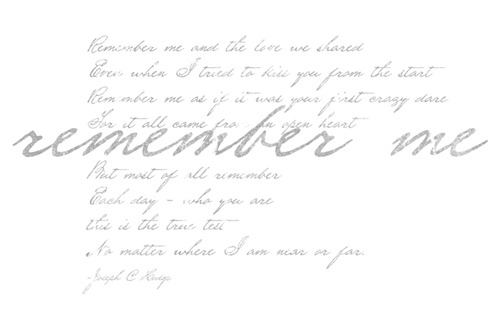 Remember me and the love we shared
Even when I tried to kiss you from the start
Remember me as if it was your first crazy dare
For it all came from an open heart
remember me
But most of all remember
Each day - who you are
this is the true test
No matter where I am near or far.
-Joseph C